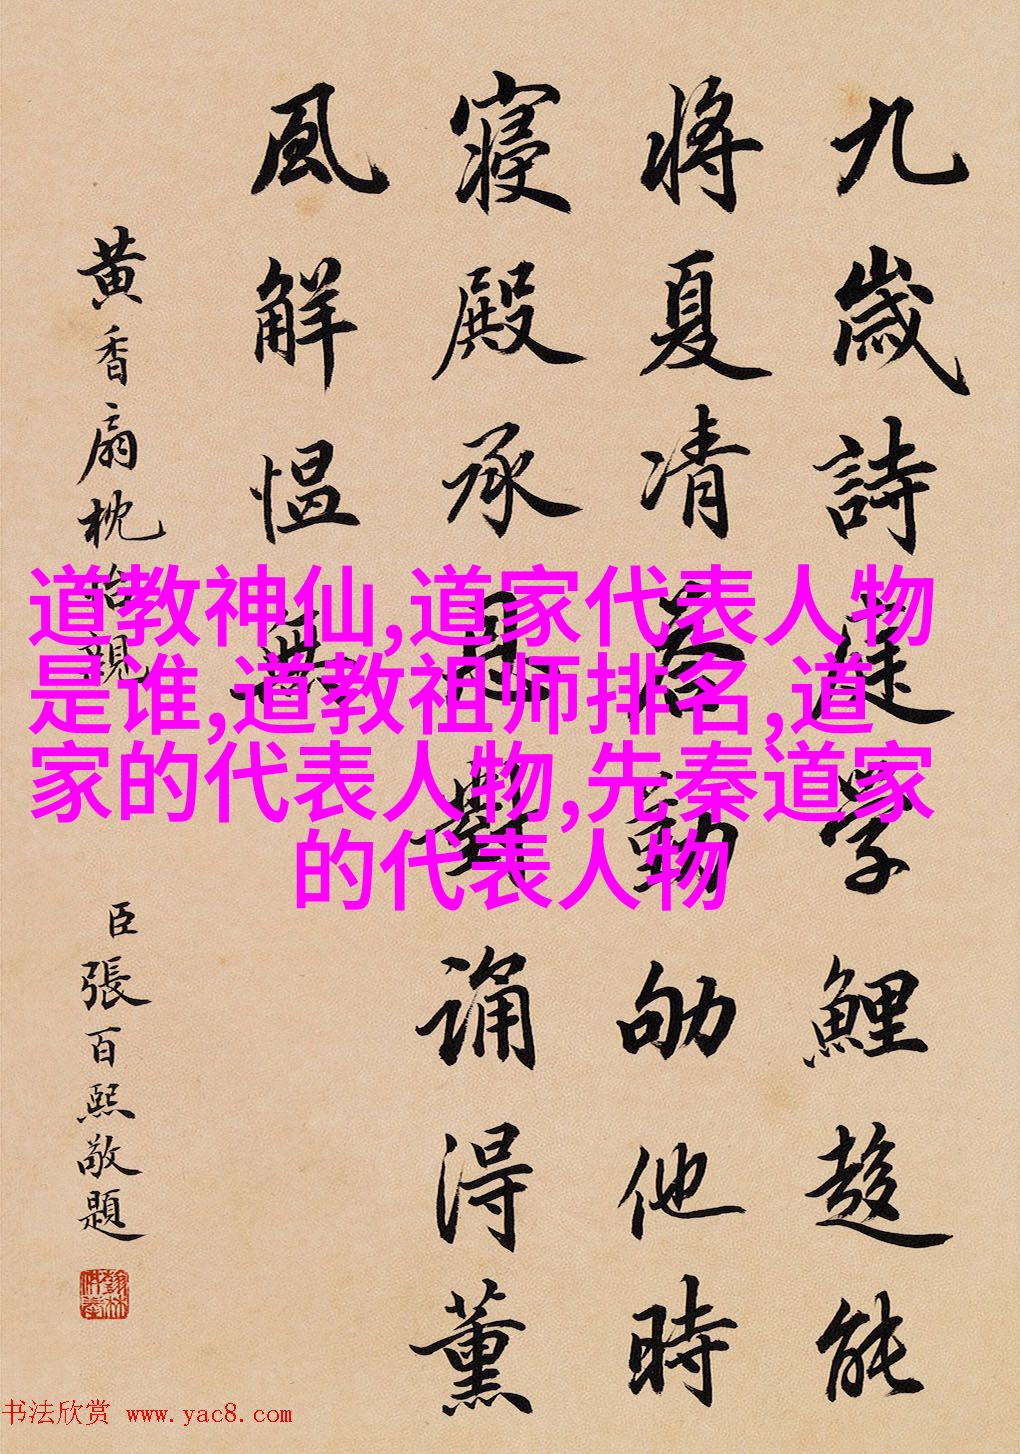 九歲詩庭學鯉趨能
將夏凊勤劬他時
寢殿承恩對誦得薰
風解慍無
黃香扇枕怡親
臣張百熙敬題
道教神仙,道家代表人物
是谁,道教祖师排名,道
家的代表人物,先秦道家
的代表人物
书法欣赏 www.yac8.com